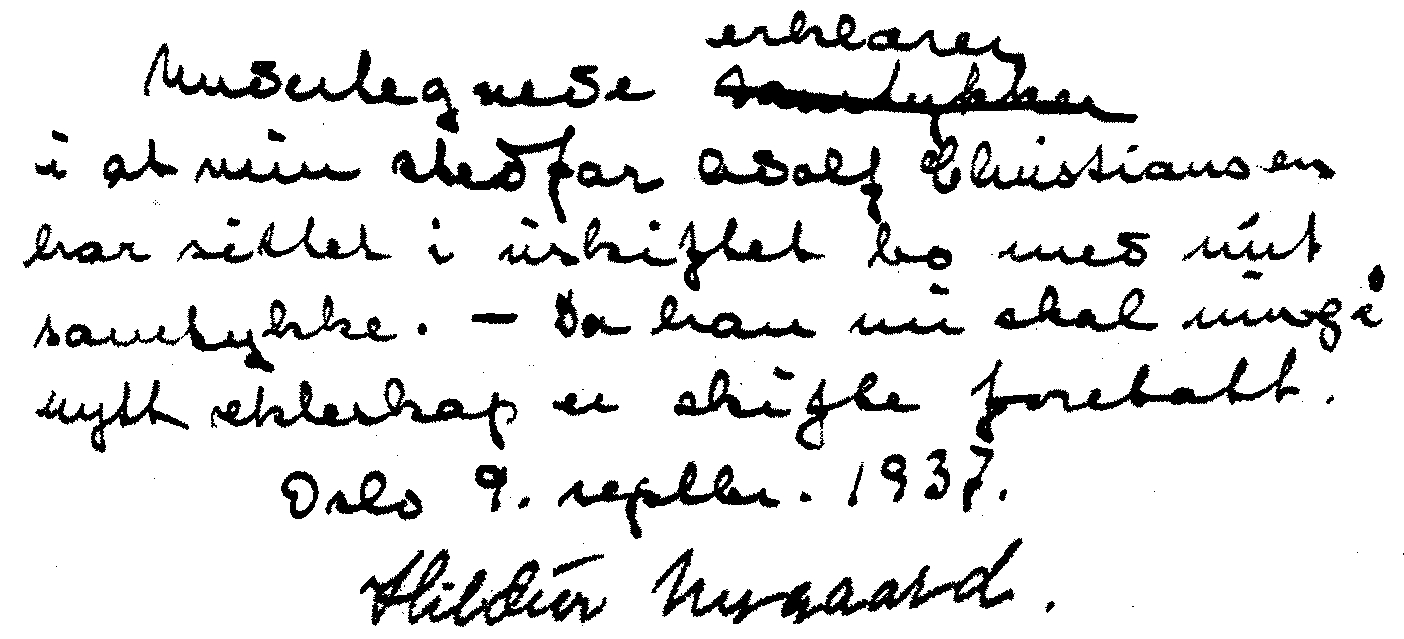 erklærer
Undertegnede samtykker
i at min stedfar Adolf Christiansen
har sittet i uskiftet bo med mitt
samtykke. – Da han nu skal inngå
nytt ekteskap er skifte foretatt.
Oslo 9. septbr. 1937.
Hildur Nygaard.